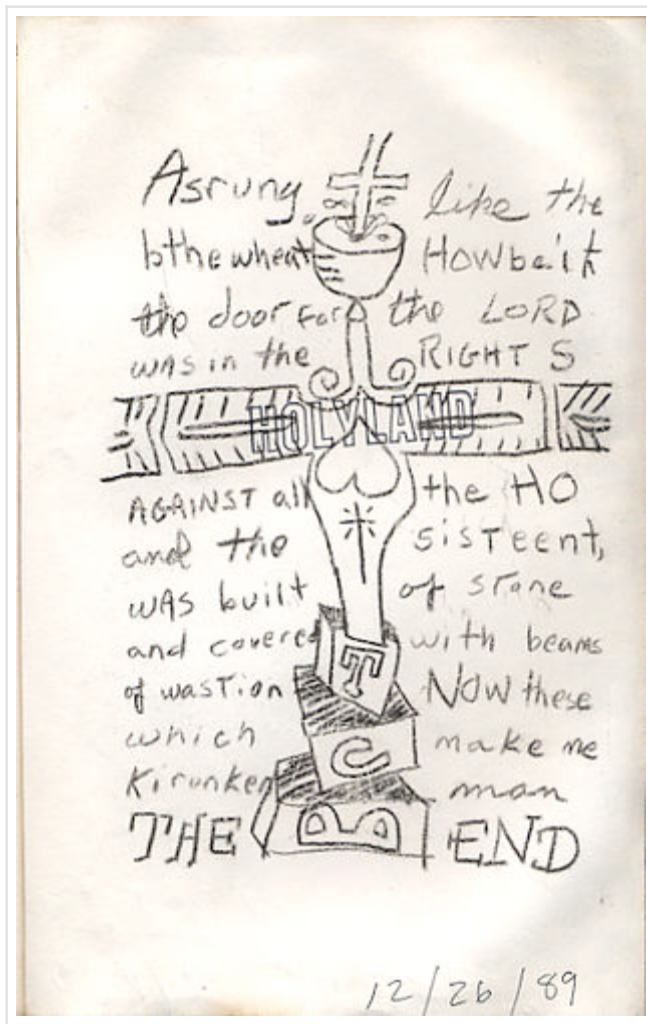 Asrung like the
bthe wheat Howbeit
the door For the LORD
was in the RIGHT S
HOLYLAND
AGAINST all the HO
and the sisteent,
was built of stone
and covered with beams
of wastion NOW these
which make me
Kirunken man
THE END
T
C
B
12/26/89